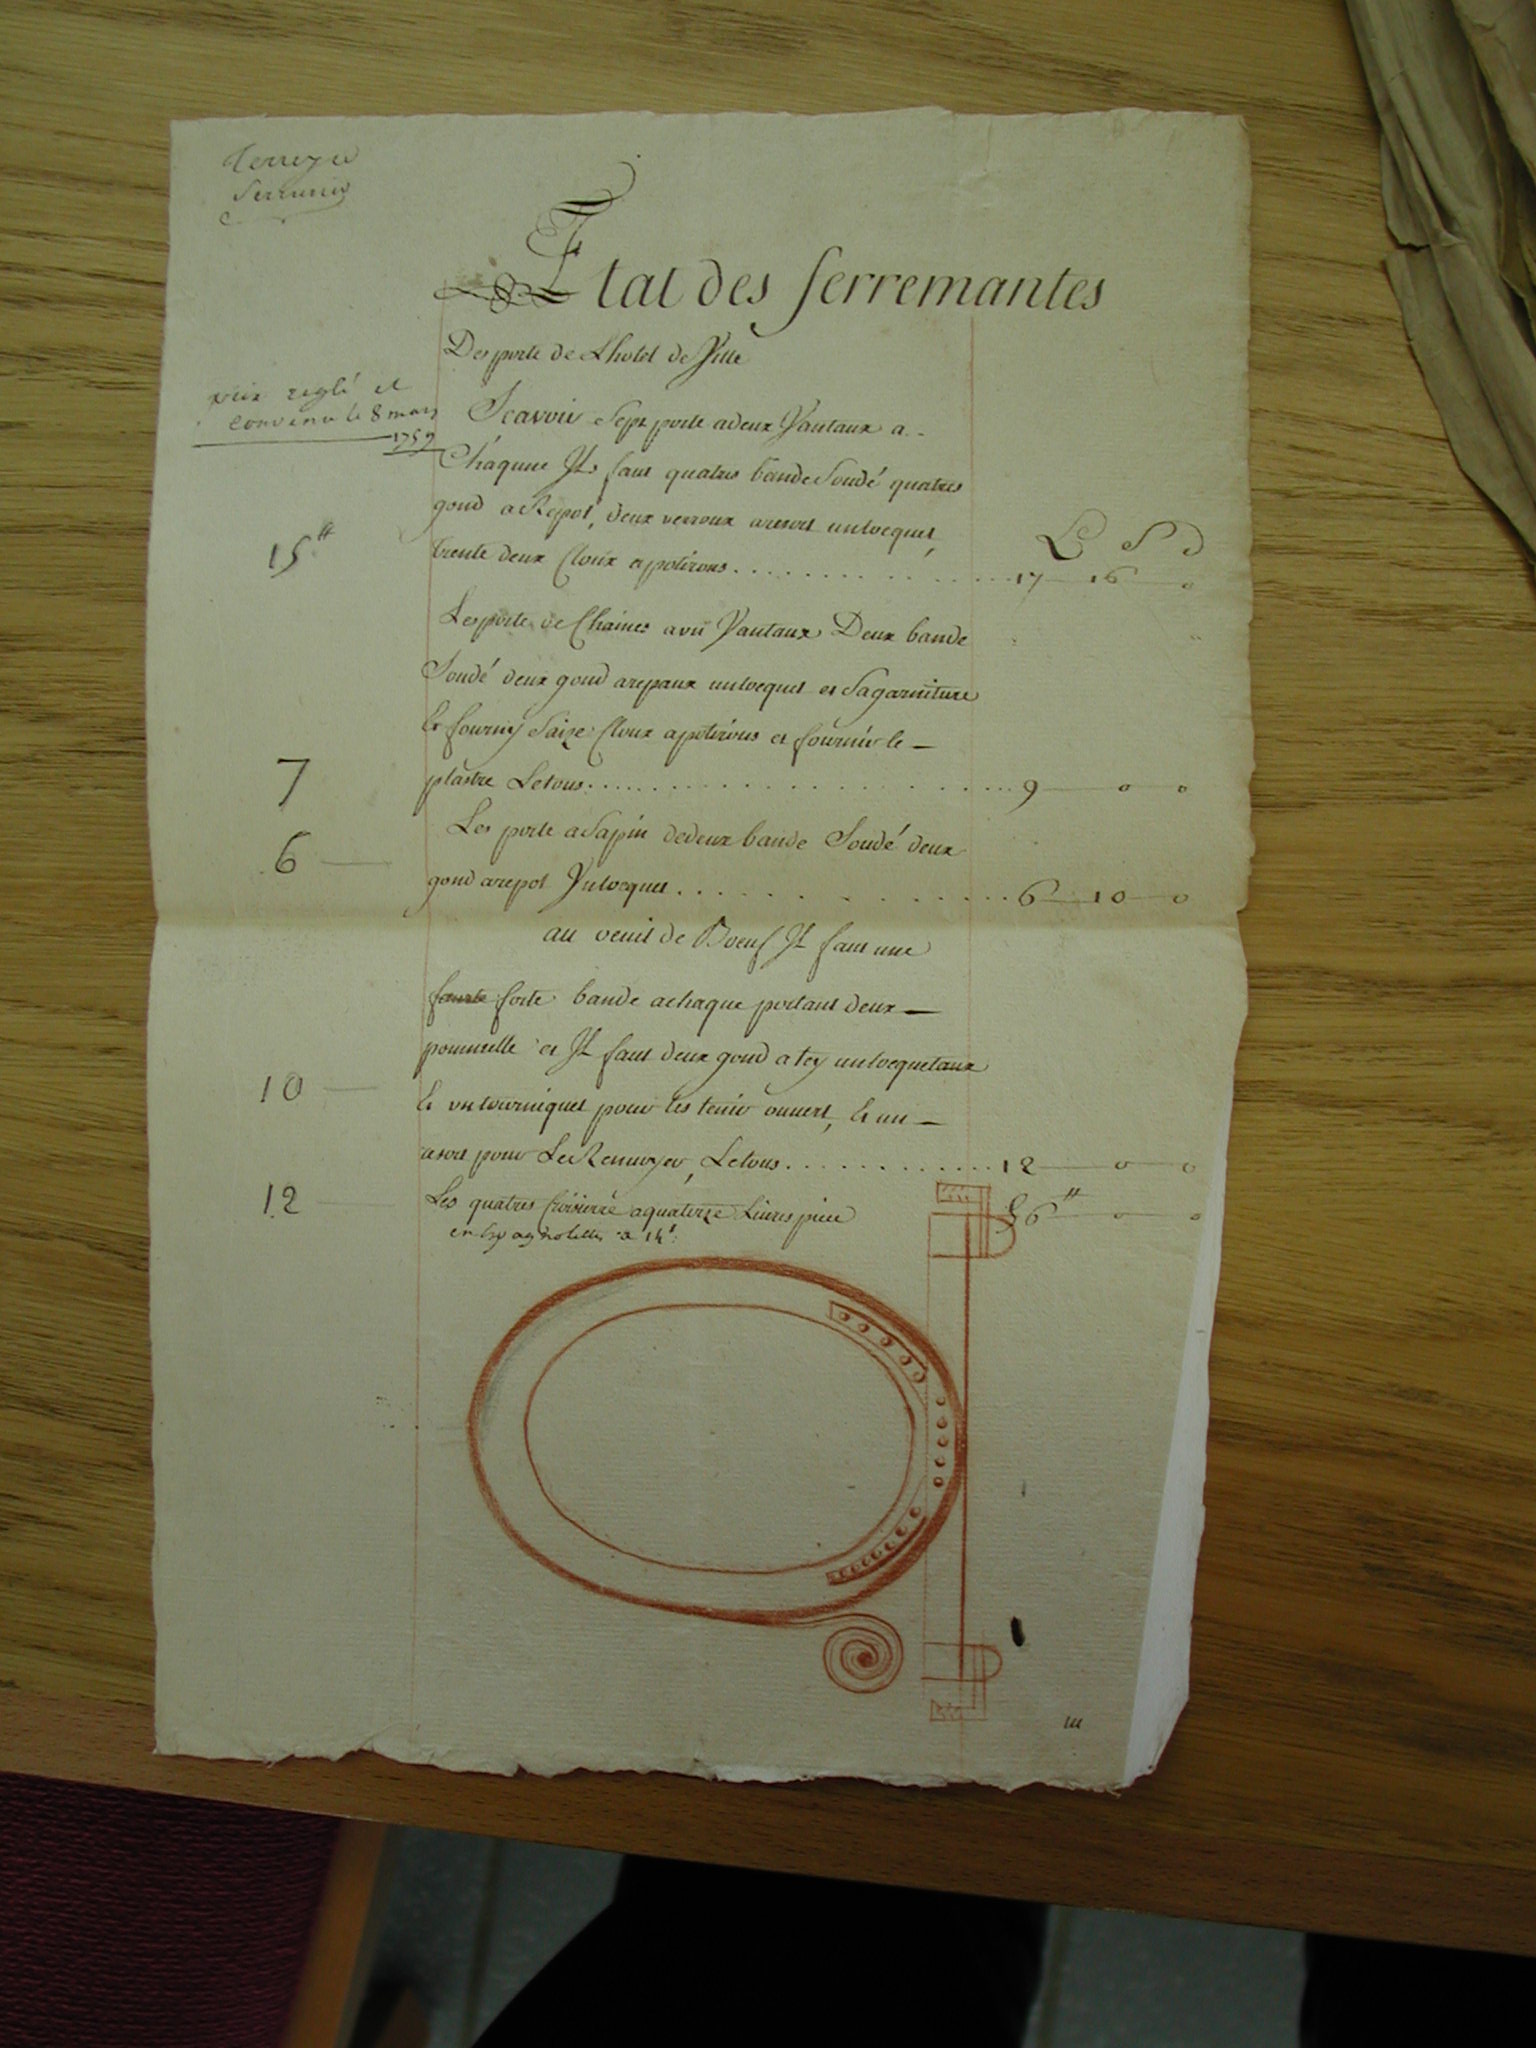 Serrurier
Etat des ferremantes
Des porte de Lhotel de Ville
prix reglé et
convenu le 8 mars
1759
Scavoir Sept porte a deux Vantaux a
Chaqune Il faut quatres bande Soudé quatres
gond a Repot, deux verroux a resort un loequet,
15#
L S D
trente deux Cloux a potirons . . . . . . . . 17 16 0
Les porte de Chaines a un Vantaux Deux bande
Soudé deux gond a repaux un loequet et Sa garniture
Et fourny Saize Cloux a potirons et fournir le
7
plastre Le tous . . . . . . . . 9 0 0
Les porte a Sapin de deux bande Soudé deux
6
gond a repot Un loequet . . . . . . . . 6 10 0
au oeuil de Boeuf Il faut une
fourte forte bande a chaque portant deux
poumelle et Il faut deux gond a un loequetaux
10
Et un tourniquet pour les tenir ouvert, Et un
resort pour Le Renvoyer, Le tous . . . . . . . . 12 0 0
12
Les quatres Croisierre a quatorze Livres piece 56# 0 0
en Espagnolettes a 14#